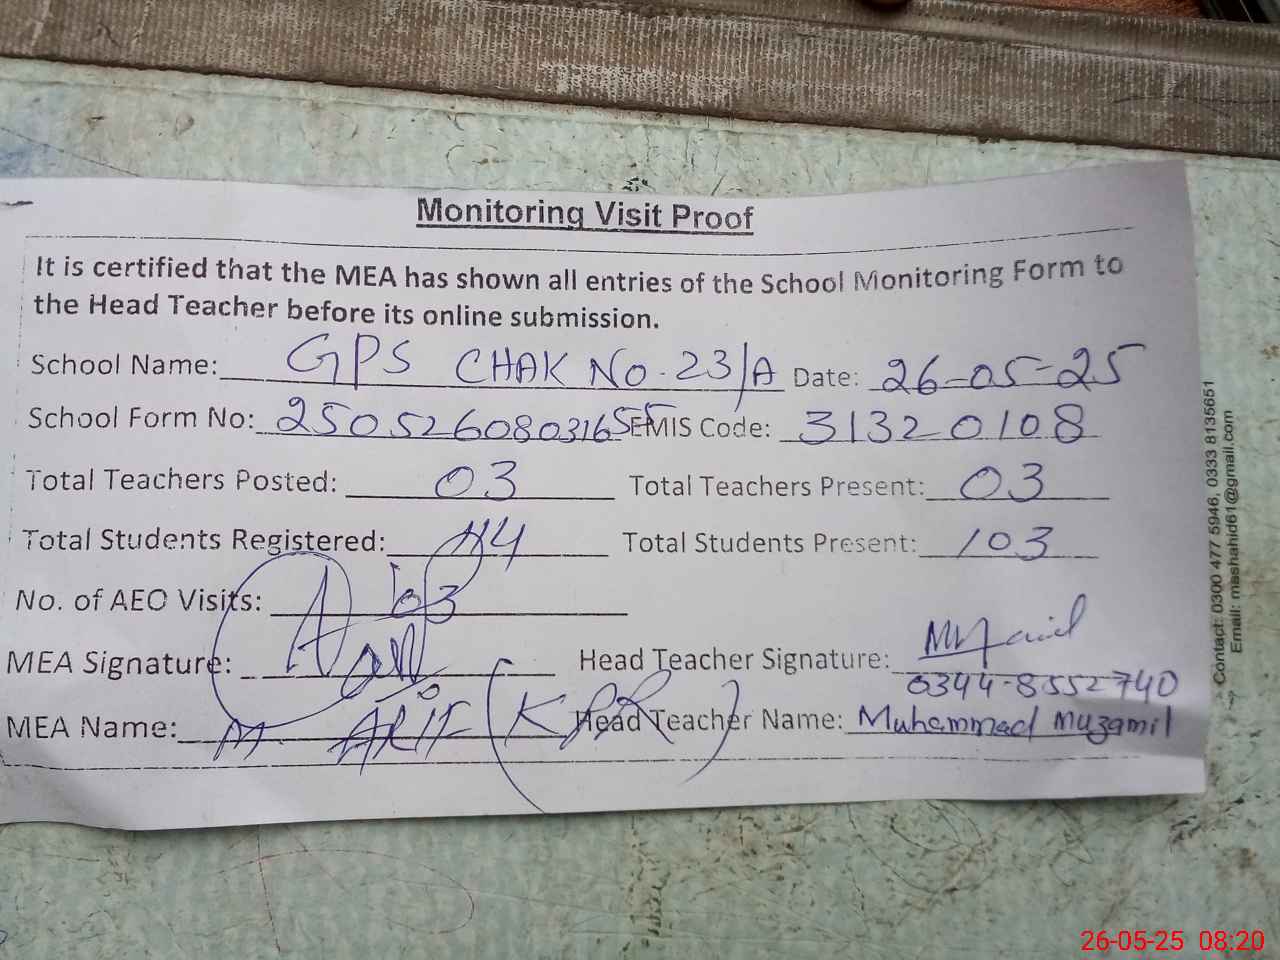 Monitoring Visit Proof
It is certified that the MEA has shown all entries of the School Monitoring Form to
the Head Teacher before its online submission.
School Name: GPS CHAK No. 23/A Date: 26-05-25
School Form No: 25052608031655 EMIS Code: 31320108
Total Teachers Posted: 03 Total Teachers Present: 03
Total Students Registered: 114 Total Students Present: 103
No. of AEO Visits: 03
MEA Signature: Head Teacher Signature:
0344-8552740
MEA Name: M. ARIF (KPR) Head Teacher Name: Muhammad Muzamil
Contact: 0300 477 5946, 0333 8135651
Email: mashahid61@gmail.com
26-05-25 08:20